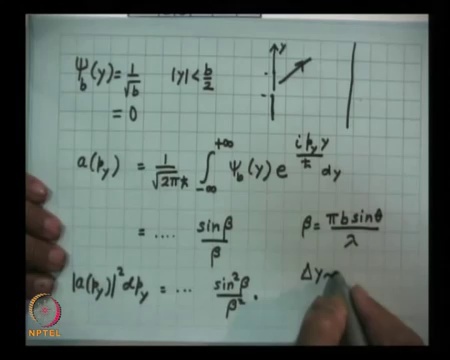 Ψ_b(y) = 1/√b |y| < b/2
= 0
y
a(p_y) = 1/√(2πħ) ∫_{-∞}^{+∞} Ψ_b(y) e^{i p_y y/ħ} dy
= .... sin β / β β = πb sinθ / λ
|a(p_y)|² dp_y = ... sin²β / β² .
Δy~
NPTEL